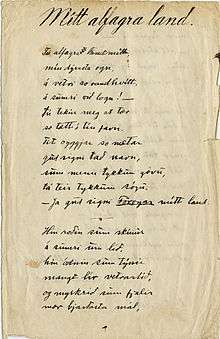 Mítt alfagra land.
Tú alfagra land mítt
mín dýrasta ogn
á vetri so randhvitt,
á sumri við logn! —
Tú tekur meg at tær
so tætt í tín favn.
Tit oyggjar so mætar
guð signi tað navn,
sum menn tykkum góvu,
tá teir tykkum sógu.
— Ja guð signi Føroyar mítt land.
Hin roðin sum skínur
á sumri um líð,
hin ódnin sum týnir
mangt lív vetrartíð,
og myrkrið sum fjalir
mær bjartasta mál,